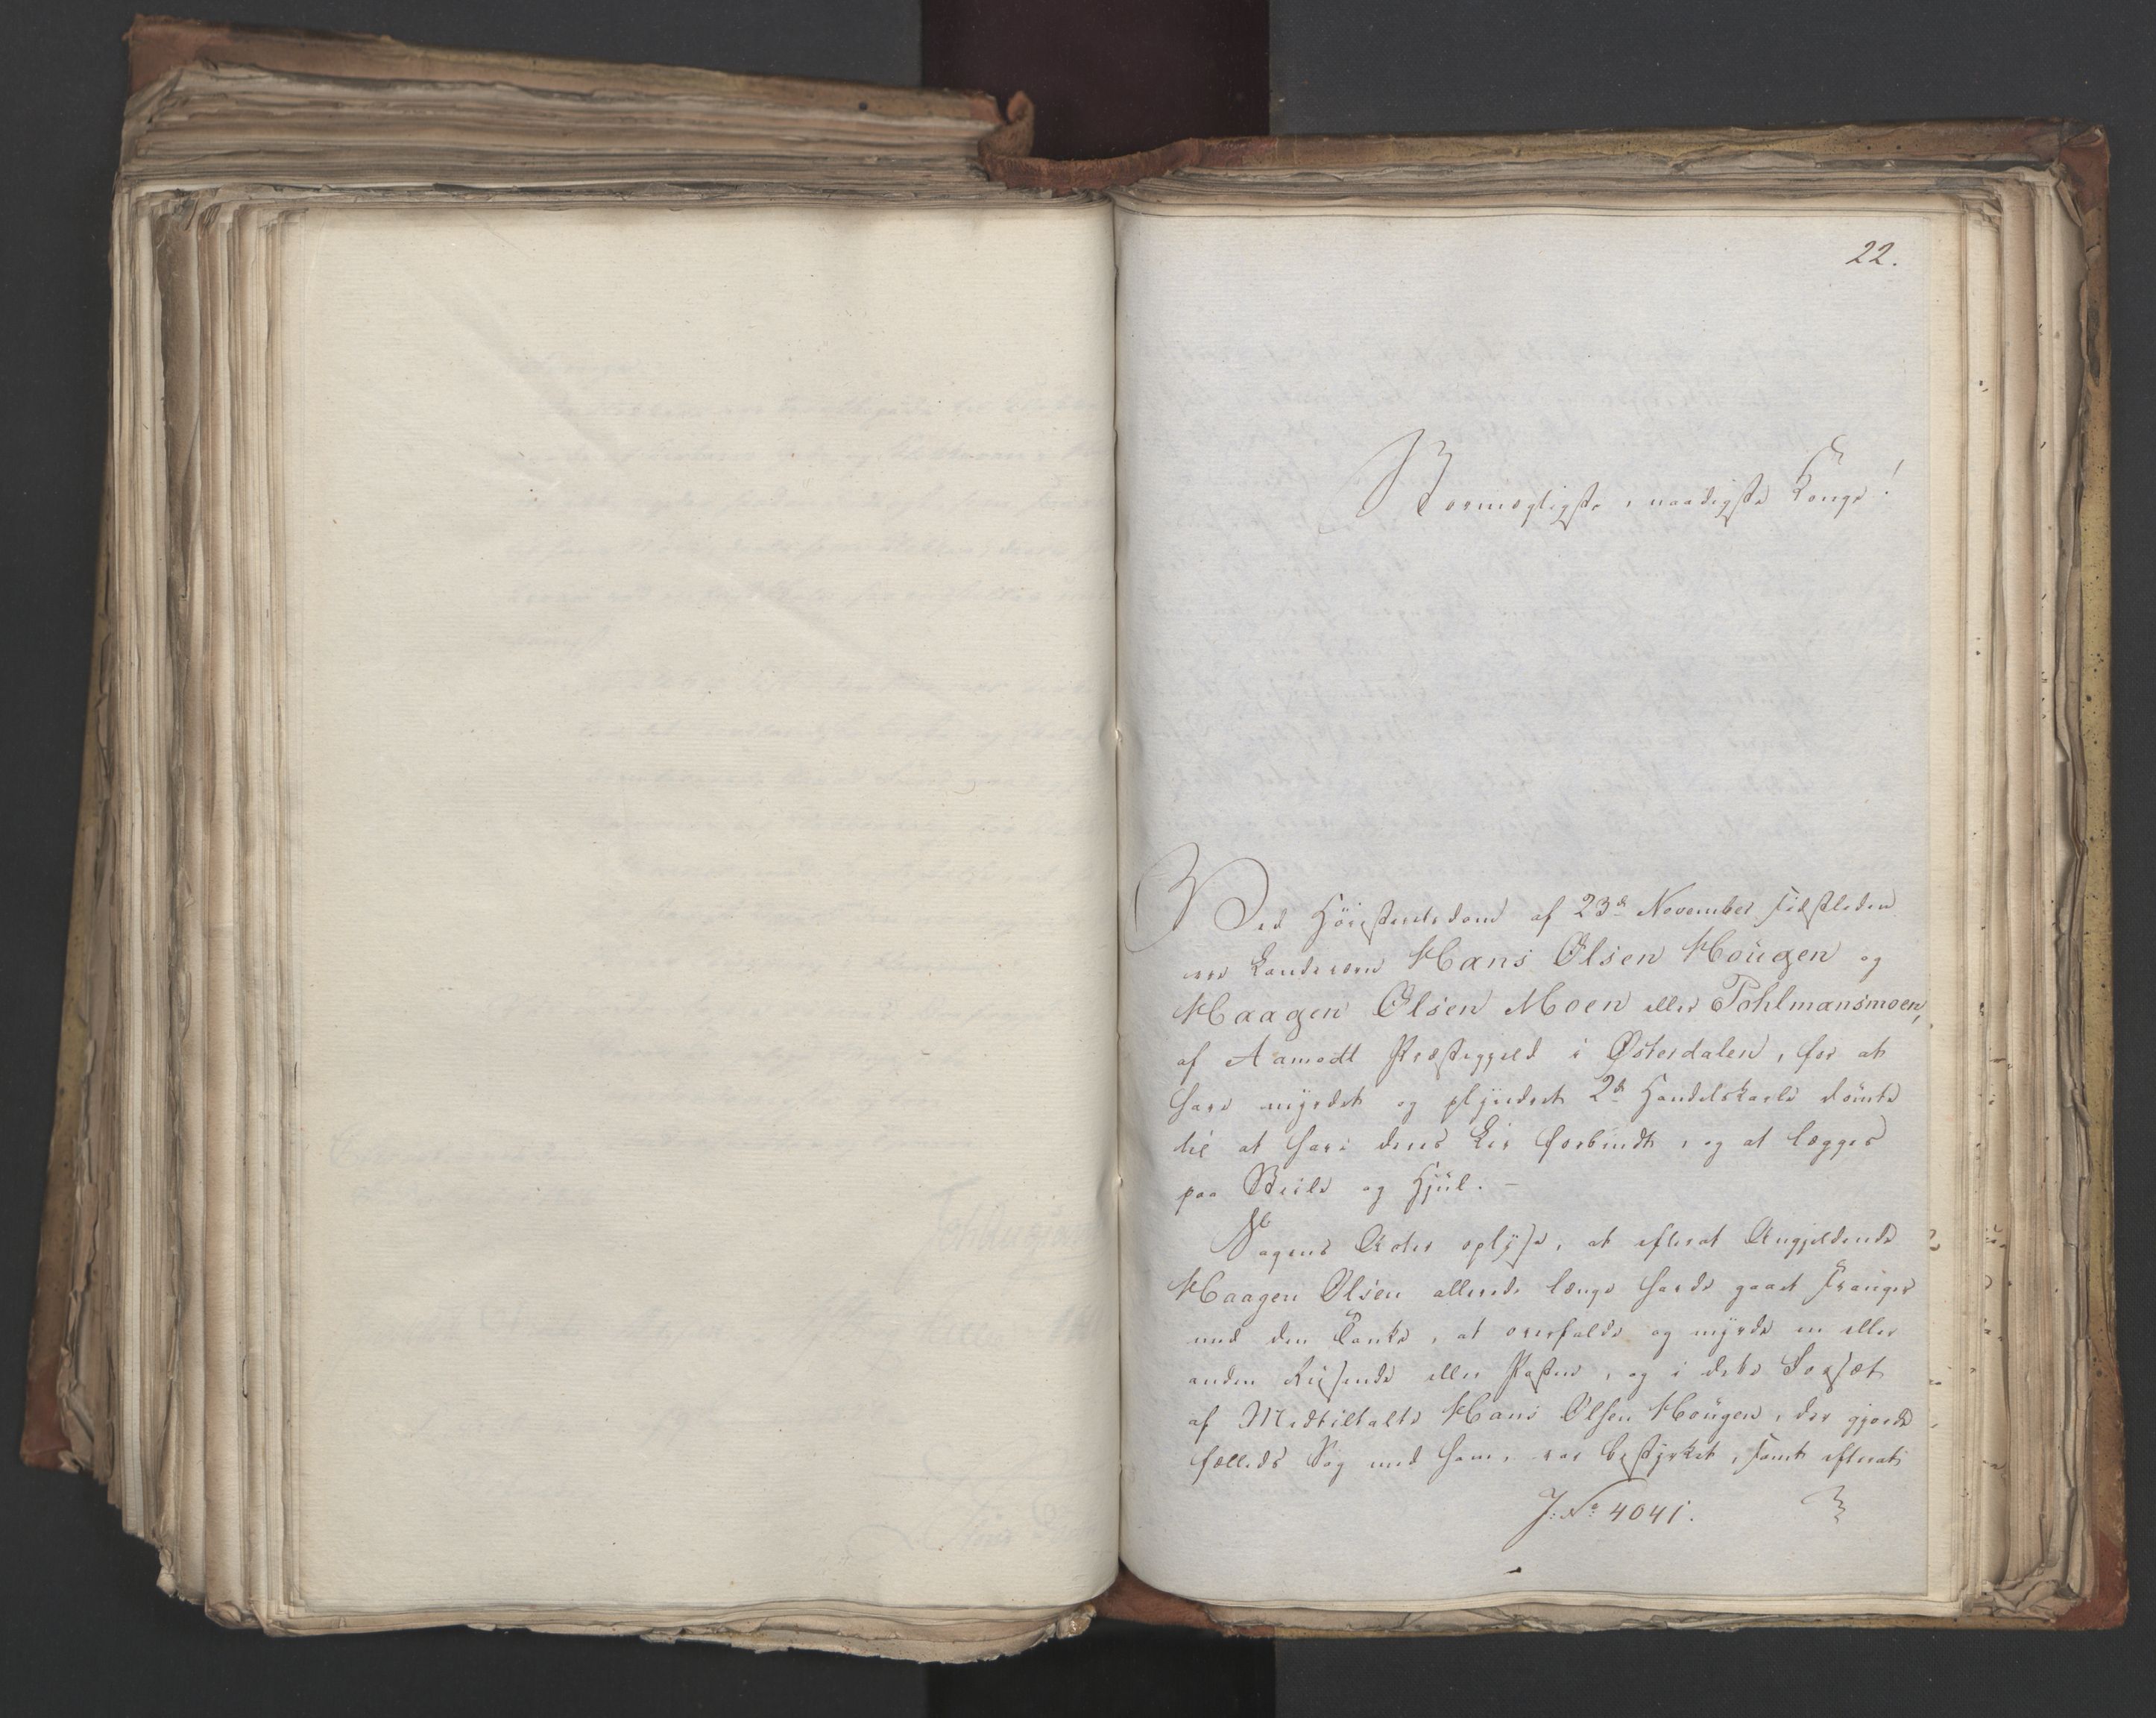 22.
Stormægtigste, naadigste Konge!
Ved Höiesteretsdom af 23de November sidstleden
ere Landværn Hans Olsen Hougen og
Haagen Olsen Moen eller Pohlmansmoen,
af Aamodt Præstegjeld i Østerdalen, for at
have myrdet og plyndret 2de Handelskarle dömte
til at have deres Liv forbrudt, og at lægges
paa Steile og Hjul. -
Sagens Acter oplyse, at efterat Angjeldende
Haagen Olsen allerede længe havde gaaet svanger
med den Tanke, at overfalde og myrde en eller
anden Reisende eller Posten, og i dette Forsæt
af Medtiltalte Hans Olsen Hougen, der gjorde
fælleds Sag med ham, var bestyrket, samt efterat
J: No 4041.